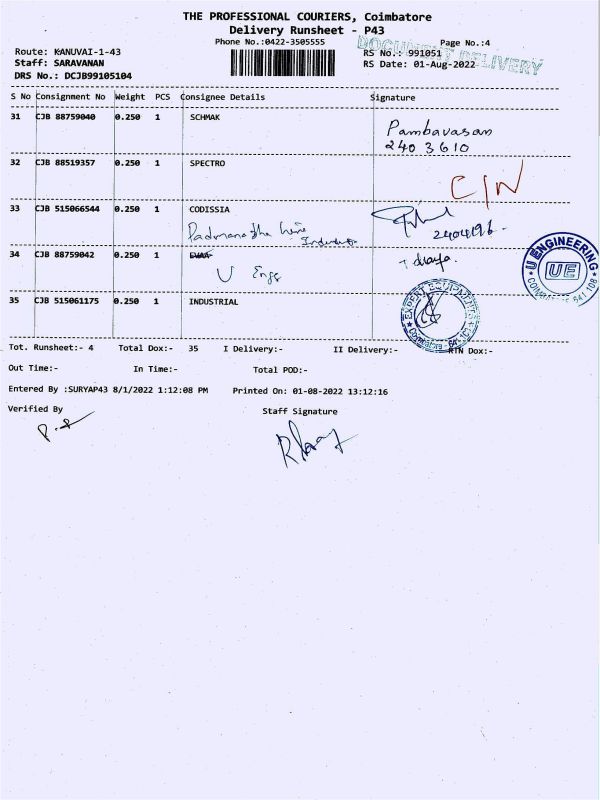 THE PROFESSIONAL COURIERS, Coimbatore
Delivery Runsheet - P43
Phone No.:0422-3505555
Page No.:4
DOCUMENT DELIVERY
Route: KANUVAI-1-43
RS No.: 991051
Staff: SARAVANAN
RS Date: 01-Aug-2022
DRS No.: DCJB99105104
S No Consignment No Weight PCS Consignee Details Signature
31 CJB 88759040 0.250 1 SCHMAK
Pambavasan
2403610
32 CJB 88519357 0.250 1 SPECTRO
C/N
33 CJB 515066544 0.250 1 CODISSIA
Padmanabha
2404196
34 CJB 88759042 0.250 1
U Engg
U ENGINEERING
UE
641 108
35 CJB 515061175 0.250 1 INDUSTRIAL
EXPERT EQUIPMENTS
Coimbatore
Tot. Runsheet:- 4 Total Dox:- 35 I Delivery:- II Delivery:- RTN Dox:-
Out Time:- In Time:- Total POD:-
Entered By :SURYAP43 8/1/2022 1:12:08 PM Printed On: 01-08-2022 13:12:16
Verified By Staff Signature